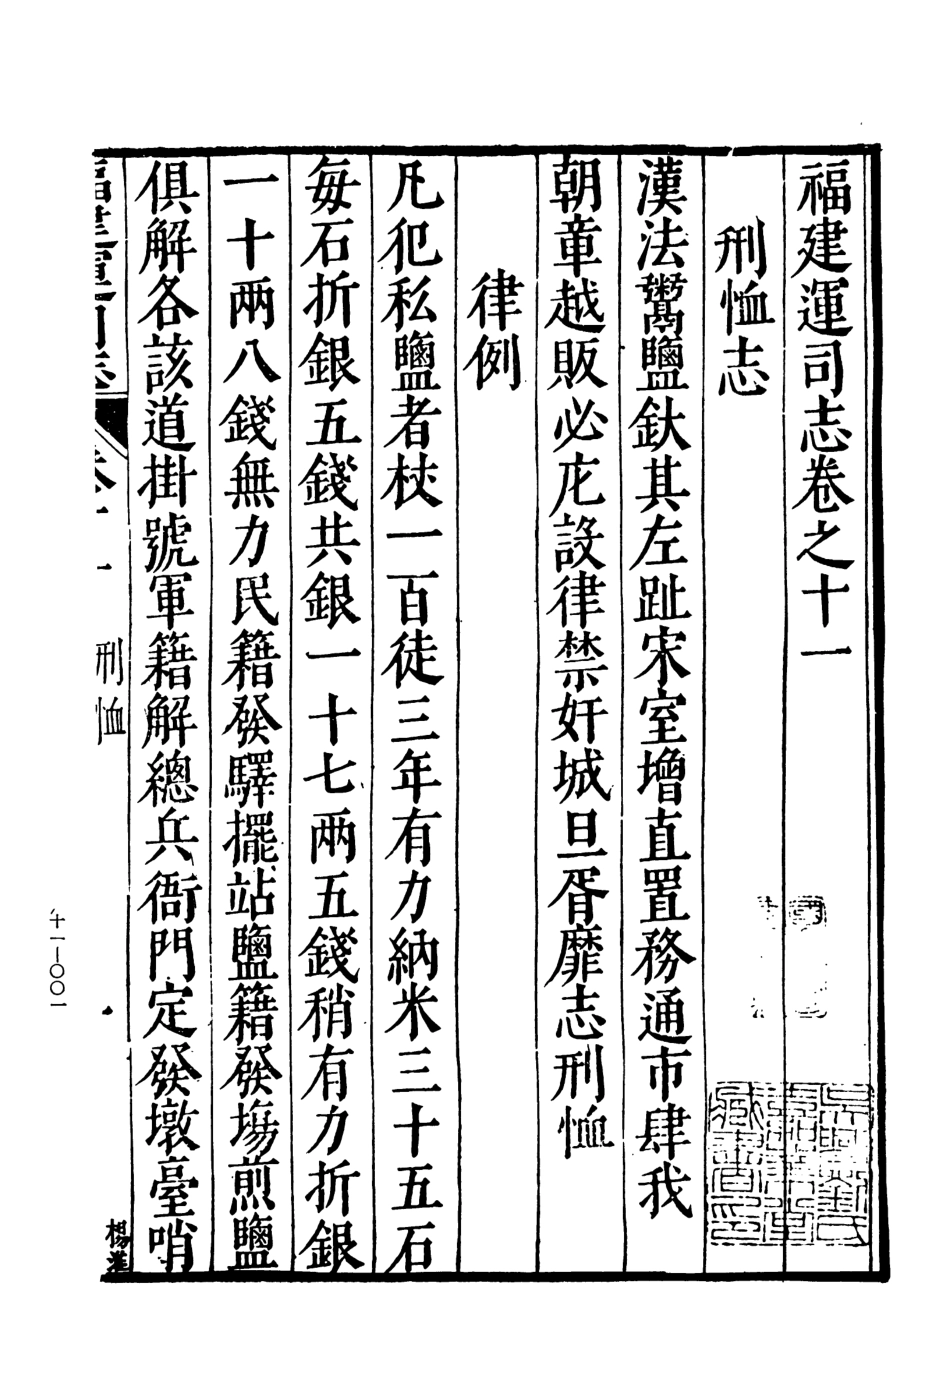 福建運司志卷之十一
刑恤志
漢法鬻鹽釱其左趾宋室增直置務通市肆我
朝章越販必庀設律禁奸城旦胥靡志刑恤
律例
凡犯私鹽者杖一百徒三年有力納米三十五石
每石折銀五錢共銀一十七兩五錢稍有力折銀
一十兩八錢無力民籍發驛擺站鹽籍發塲煎鹽
俱解各該道掛號軍籍解總兵衙門定發墩臺哨
福建運司志 卷十一 刑恤
楊進
十一—〇〇一